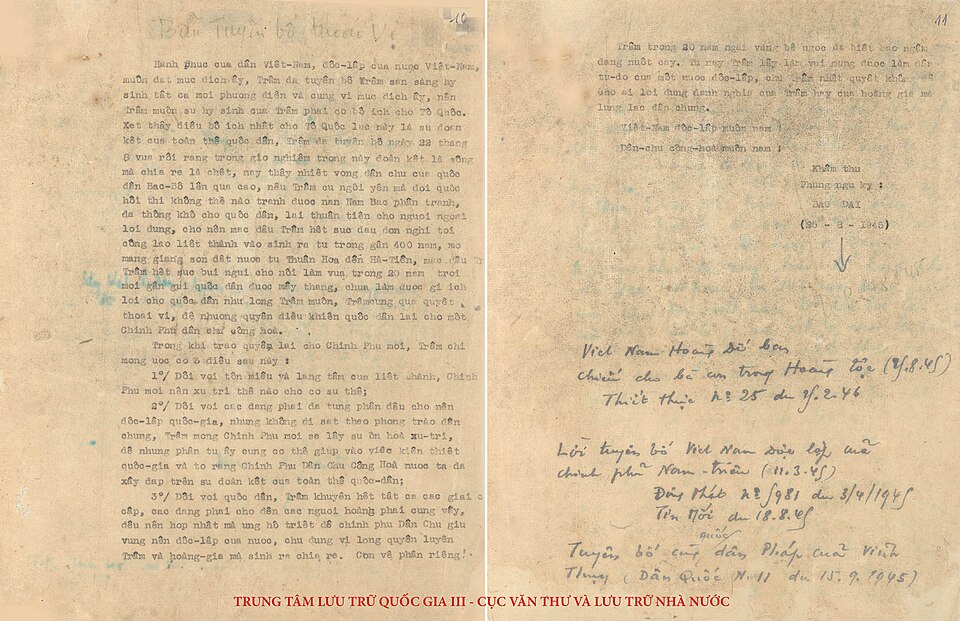 10
Bản Tuyên bố thoái vị
Hanh phuc cua dân Viêt-Nam, đôc-lâp cua nuoc Viêt-Nam,
muôn dat muc dich ây, Trâm da tuyên bô Trâm san sàng hy
sinh tât ca moi phuong diên và cung vi muc dich ây, nên
Trâm muôn su hy sinh cua Trâm phai co bô ich cho Tô Quôc.
Xet thây diêu bô ich nhât cho Tô Quôc luc này là su doan
kêt cua toàn thê quôc dân, Trâm da tuyên bô ngày 22 thang
8 vua rôi rang trong gio nghiêm trong này đoàn kêt là sông
mà chia re là chêt, nay thây nhiêt vong dân chu cua quôc
dân Bac-Bô lên qua cao, nêu Trâm cu ngôi yên mà doi quôc
hôi thi không thê nào tranh duoc nan Nam Bac phân tranh,
da thông khô cho quôc dân, lai thuân tiên cho nguoi ngoai
loi dung, cho nên mac dâu Trâm hêt suc dau don nghi toi
công lao liêt thánh vào sinh ra tu trong gân 400 nam, mo
mang giang son dât nuoc tu Thuân Hoa dên Hà-Tiên, mac dâu Tr
Trâm hêt suc bui ngui cho nôi làm vua trong 20 nam troi
moi gân gui quôc dân duoc mây thang, chua làm duoc gi ich
loi cho quôc dân nhu long Trâm muôn, Trâm cung qua quyêt
thoai vi, dê nhuong quyên diêu khiên quôc dân lai cho môt
Chinh Phu dân chu công hoà.
Trong khi trao quyên lai cho Chinh Phu moi, Trâm chi
mong uoc co 3 diêu sau này :
1°/ Dôi voi tôn miêu và lang tâm cua liêt thánh, Chinh
Phu moi nên xu tri thê nào cho co su thê;
2°/ Dôi voi cac dang phai da tung phân dâu cho nên
dôc-lâp quôc-gia, nhung không di sat theo phong trào dân
chung, Trâm mong Chinh Phu moi se lây su ôn hoà xu-tri,
dê nhung phân tu ây cung co thê giup vào viêc kiên thiêt
quôc-gia và to rang Chinh Phu Dân Chu Công Hoà nuoc ta da
xây dap trên su doàn kêt cua toàn thê quôc-dân;
3°/ Dôi voi quôc dân, Trâm khuyên hêt tât ca cac giai c
câp, cac dang phai cho dên cac nguoi hoàng phai cung vây,
dêu nên hop nhât mà ung hô triêt dê chinh phu Dân Chu giu
vung nên dôc-lâp cua nuoc, chu dung vi long quyên luyên
Trâm và hoàng-gia mà sinh ra chia re. Con vê phân riêng
11
Trâm trong 20 nam ngai vàng bê ngoc da biêt bao ngâm
dang nuôt cay. Tu nay Trâm lây làm vui mung duoc làm dân
tu-do cua môt nuoc dôc-lâp, chu Trâm nhât quyêt không dê
cho ai loi dung danh nghia cua Trâm hay cua hoàng gia mà
lung lac dân chung.
Viêt-Nam dôc-lâp muôn nam !
Dân-chu công-hoà muôn nam !
Khâm thu
Thung ngu ky :
BAO DAI
(25 - 8 - 1945)
Việt Nam Hoàng Đế ban
chiếu cho bà con trong Hoàng tộc (25.8.45)
Thiết thực No 25 du 25.2.46
Lời tuyên bố Việt Nam Độc lập của
chính phủ Nam-triều (11.3.45)
Đông Phát No 5981 du 3/4/1945
Tin Mới du 18.8.45
quốc
Tuyên bố cùng dân Pháp của Vĩnh
Thụy (Dân Quốc N. 11 du 15.9.1945)
TRUNG TÂM LƯU TRỮ QUỐC GIA III - CỤC VĂN THƯ VÀ LƯU TRỮ NHÀ NƯỚC